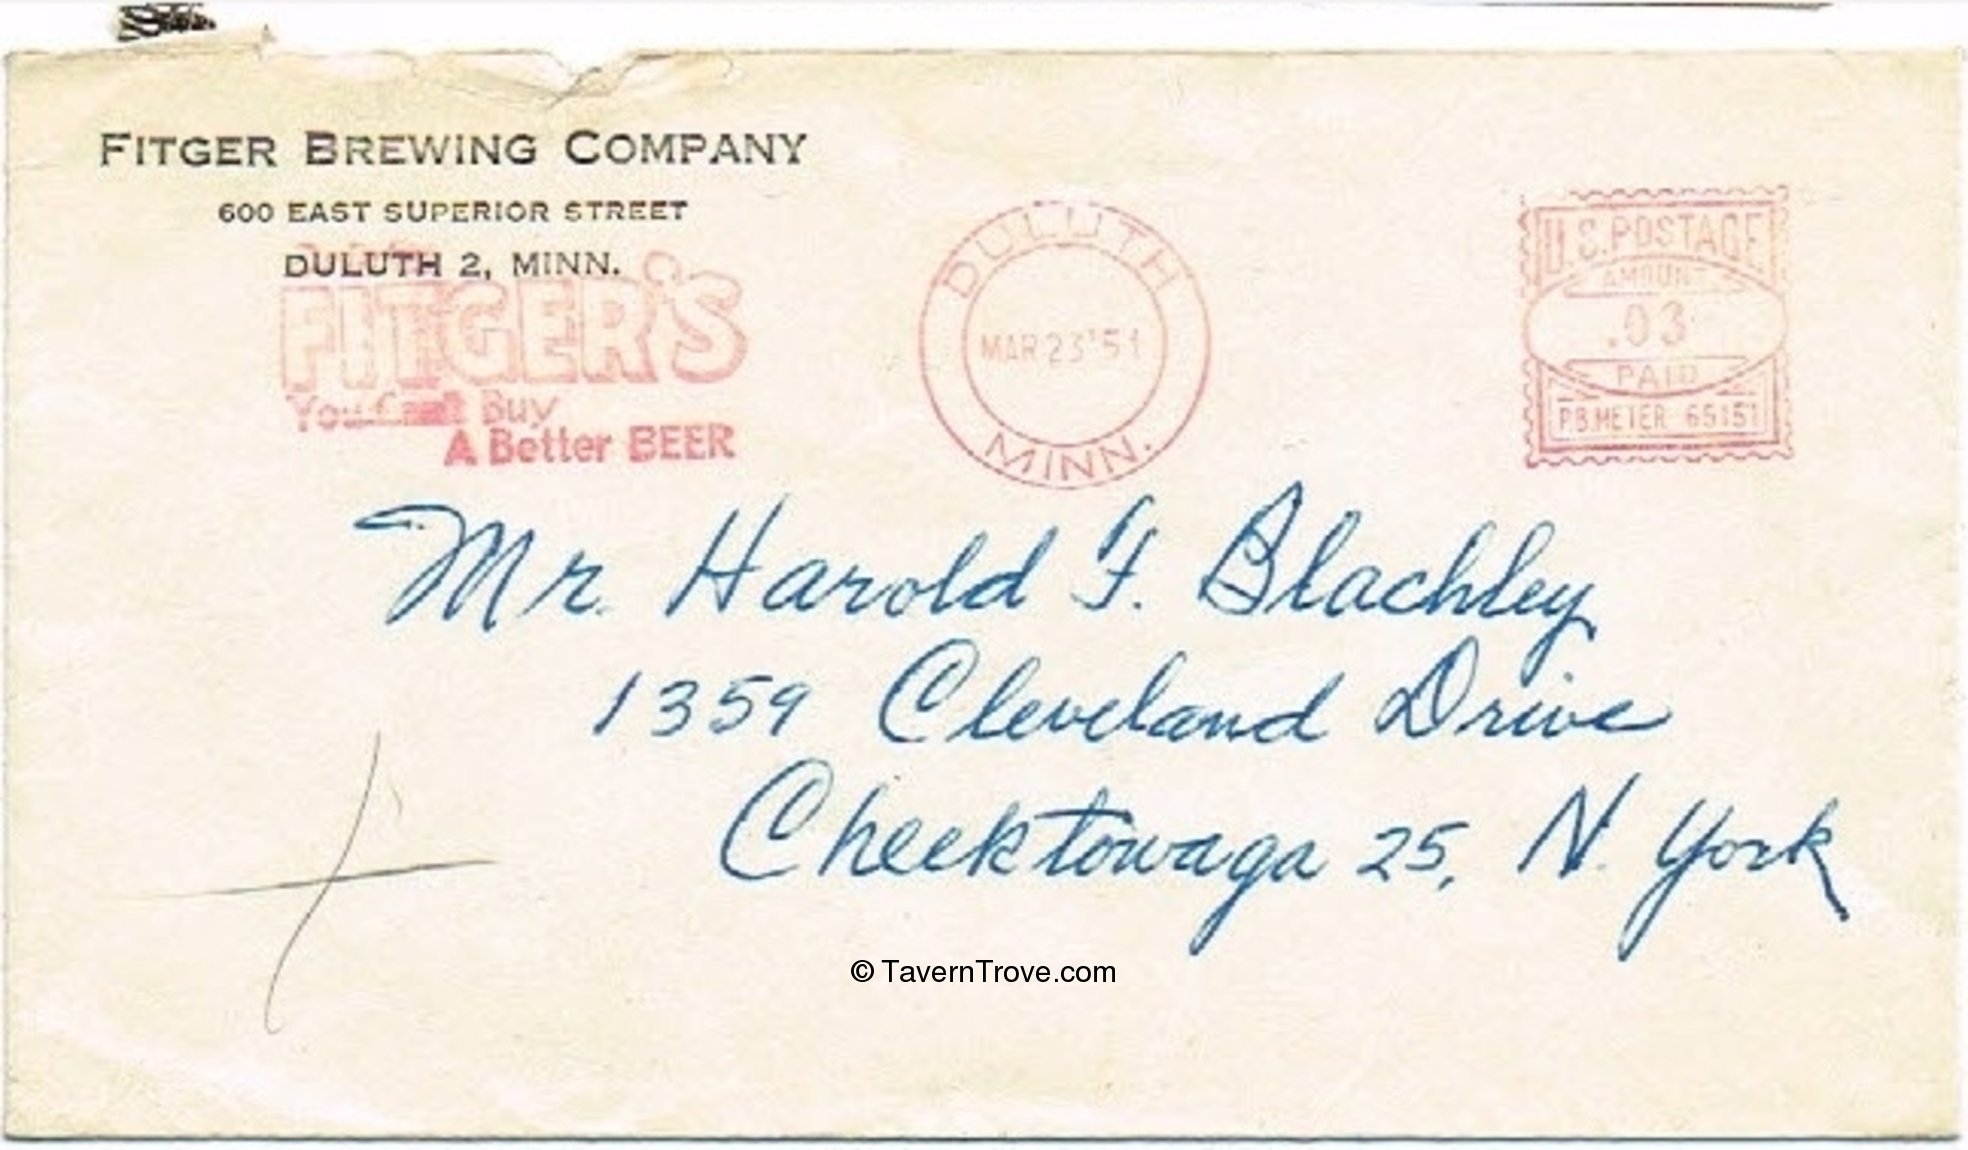 FITGER BREWING COMPANY
600 EAST SUPERIOR STREET
DULUTH 2, MINN.
DULUTH
FITGER'S
You Can't Buy
A Better BEER
DULUTH
MAR 23 '51
MINN.
U.S. POSTAGE
AMOUNT
.03
PAID
P.B. METER 65151
Mr. Harold F. Blachley
1359 Cleveland Drive
Cheektowaga 25, N. York
© TavernTrove.com